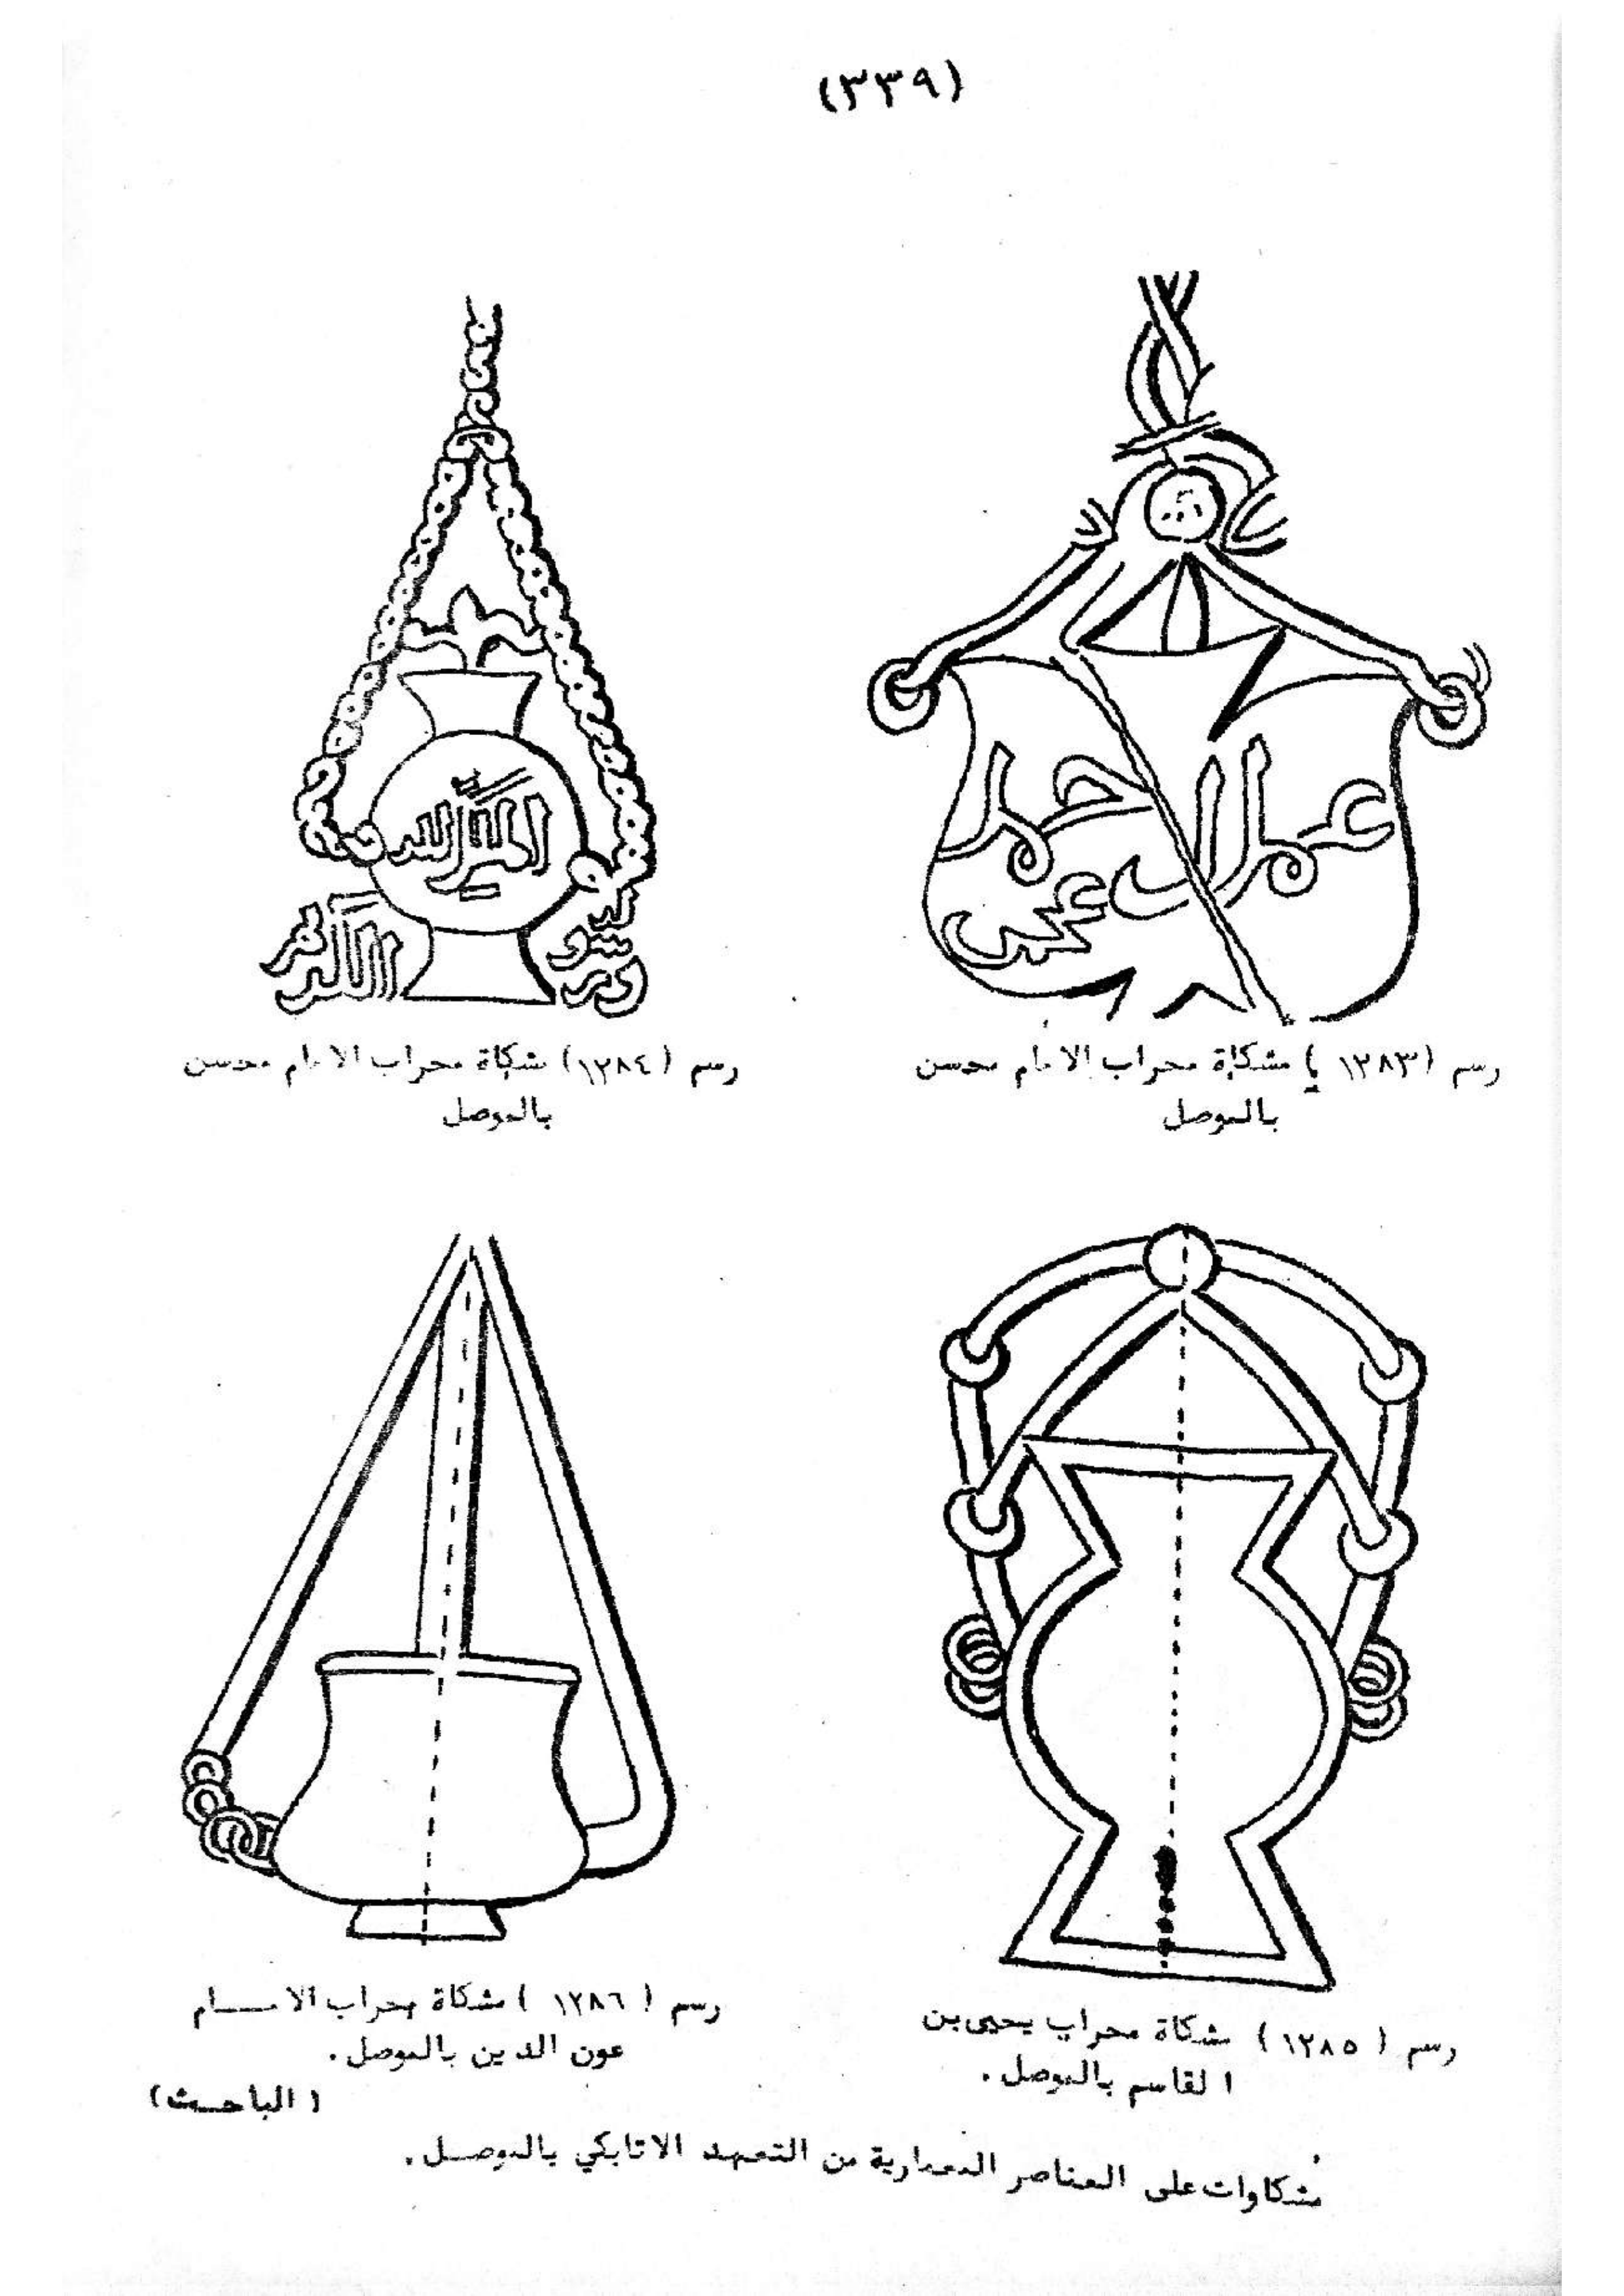 (٣٣٩)
رسم (١٢٨٣) مشكاة محراب الامام محسن
بالموصل
رسم (١٢٨٤) شكاة محراب الامام محسن
بالموصل
رسم (١٢٨٥) شكاة محراب يحيى بن
القاسم بالموصل.
رسم (١٢٨٦) مشكاة محراب الامـــام
عون الدين بالموصل.
(الباحث)
مشكاوات على العناصر المعمارية من التعهد الاتابكي بالموصل.